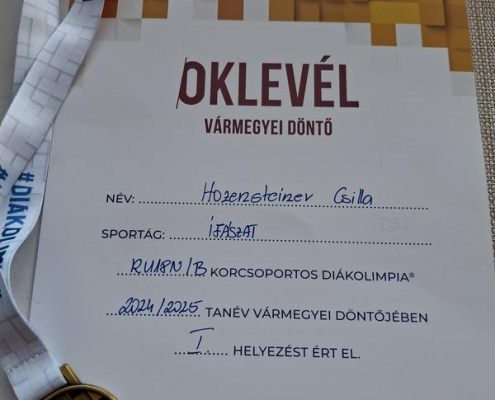 OKLEVÉL
VÁRMEGYEI DÖNTŐ
NÉV: Hozensteiner Csilla
SPORTÁG: ÍJÁSZAT
RU18N/B KORCSOPORTOS DIÁKOLIMPIA®
2024/2025 TANÉV VÁRMEGYEI DÖNTŐJÉBEN
I. HELYEZÉST ÉRT EL.
#DIÁKOL